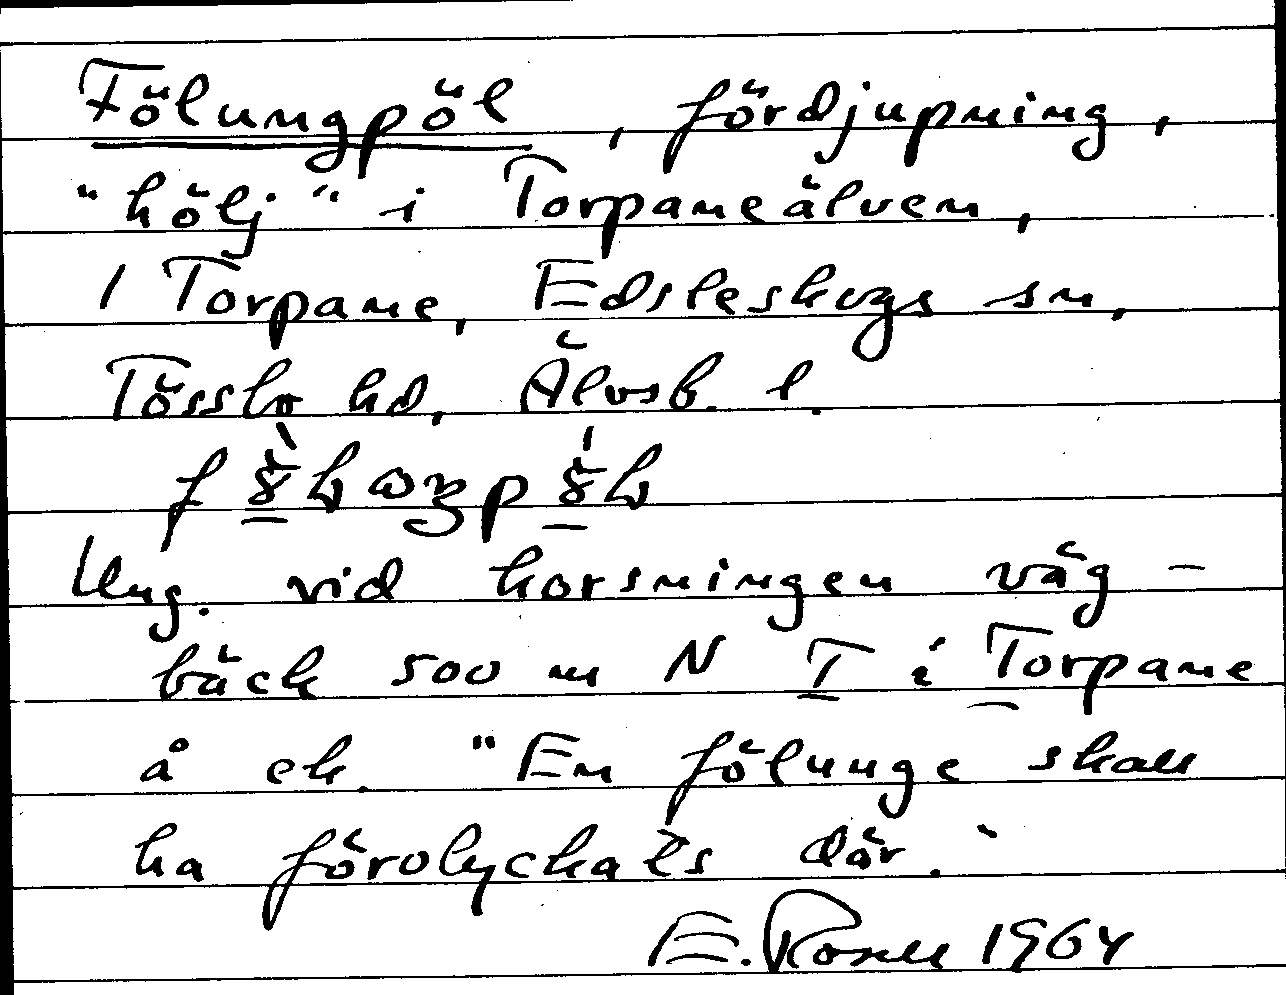 Fölungpöl, fördjupning,
"hölj" i Torpaneälven,
1 Torpane, Edsleskogs sn,
Tössbo hd, Älvsb. l.
Ung. vid korsningen väg-
bäck 500 m N T i Torpane
å ek. "En fölunge skall
ha förolyckats där."
E. Rosell 1964